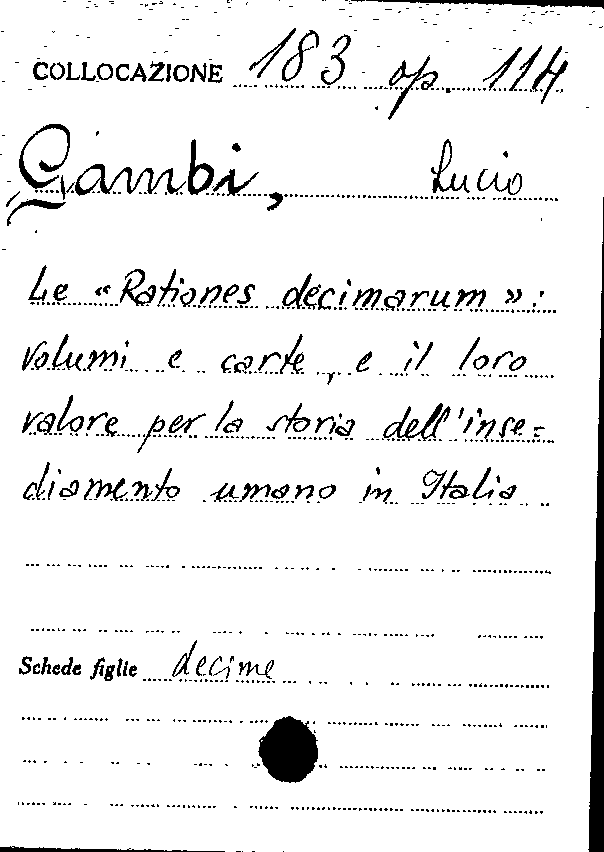 COLLOCAZIONE 183 op. 114
Gambi, Lucio
Le «Rationes decimarum»:
volumi e carte, e il loro
valore per la storia dell'inse=
diamento umano in Italia
Schede figlie decime